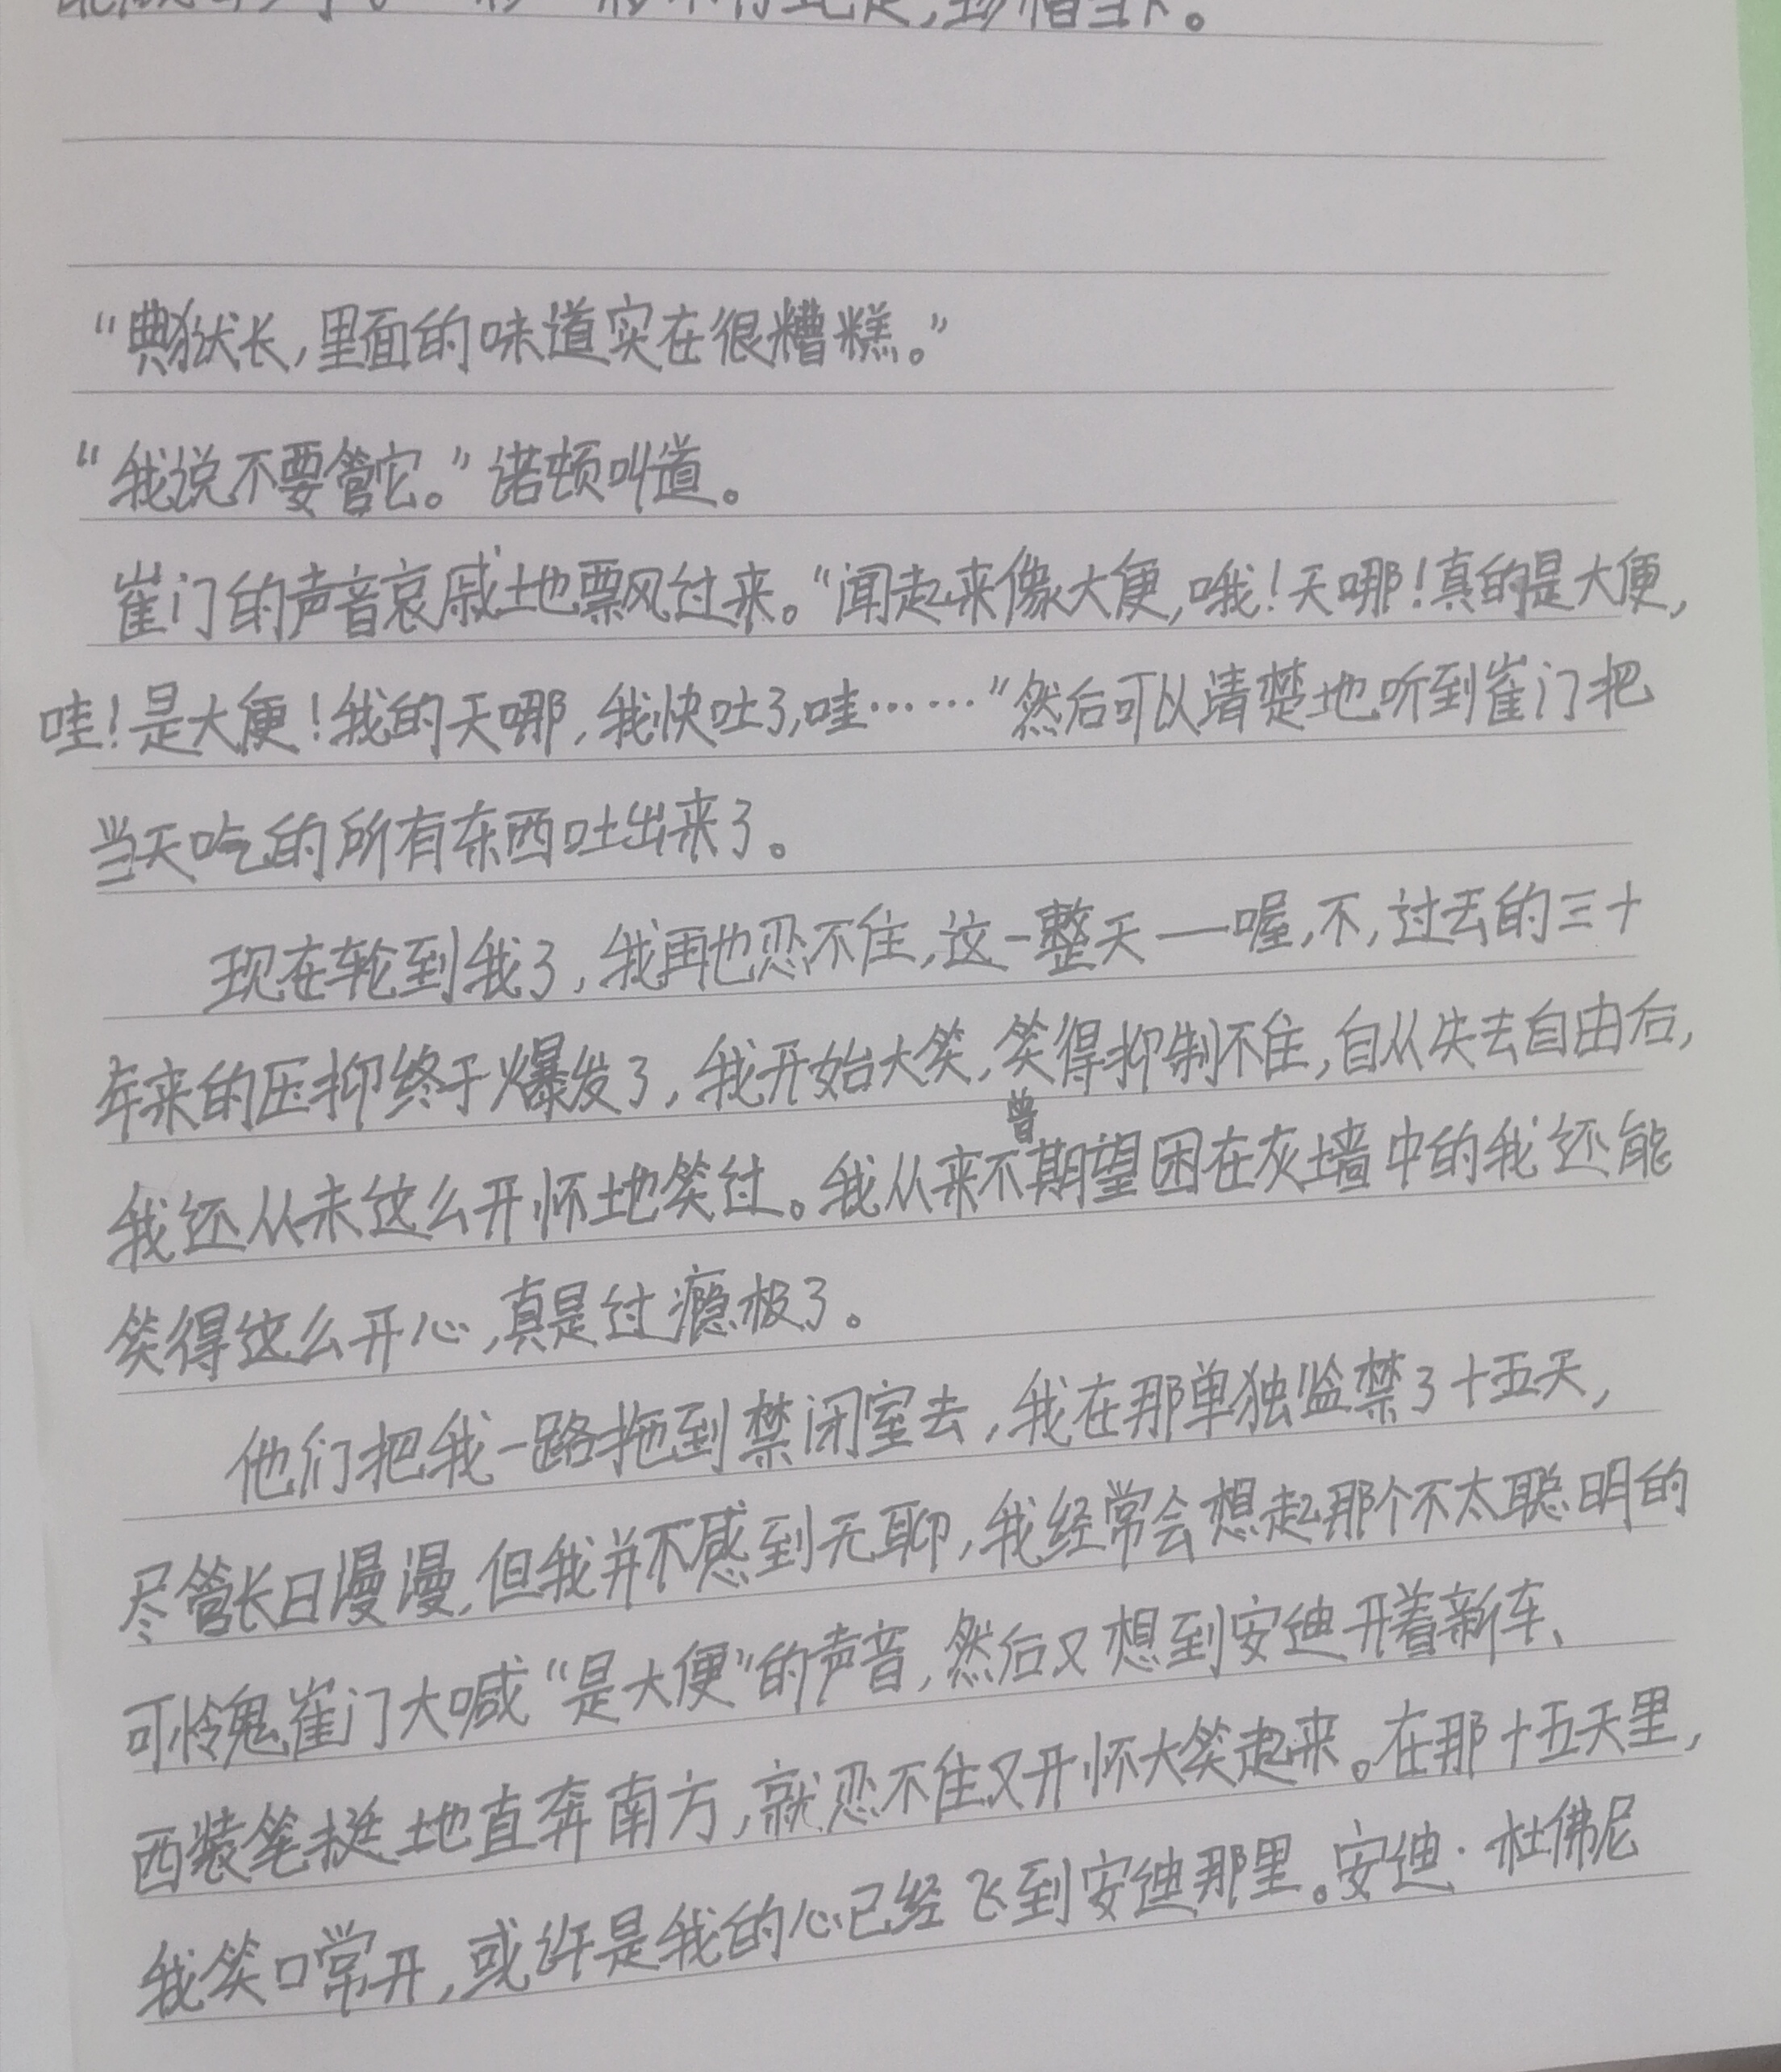 珍惜当下。
“典狱长,里面的味道实在很糟糕。”
“我说不要管它。”诺顿叫道。
崔门的声音哀戚地飘过来。“闻起来像大便,哦!天哪!真的是大便,
哇!是大便!我的天哪,我快吐了,哇……”然后可以清楚地听到崔门把
当天吃的所有东西吐出来了。
现在轮到我了,我再也忍不住,这一整天——喔,不,过去的三十
年来的压抑终于爆发了,我开始大笑,笑得抑制不住,自从失去自由后,
我还从未这么开怀地笑过。我从来不曾期望困在灰墙中的我还能
笑得这么开心,真是过瘾极了。
他们把我一路拖到禁闭室去,我在那单独监禁了十五天,
尽管长日漫漫,但我并不感到无聊,我经常会想起那个不太聪明的
可怜鬼崔门大喊“是大便”的声音,然后又想到安迪开着新车、
西装笔挺地直奔南方,就忍不住又开怀大笑起来。在那十五天里,
我笑口常开,或许是我的心已经飞到安迪那里。安迪·杜佛尼